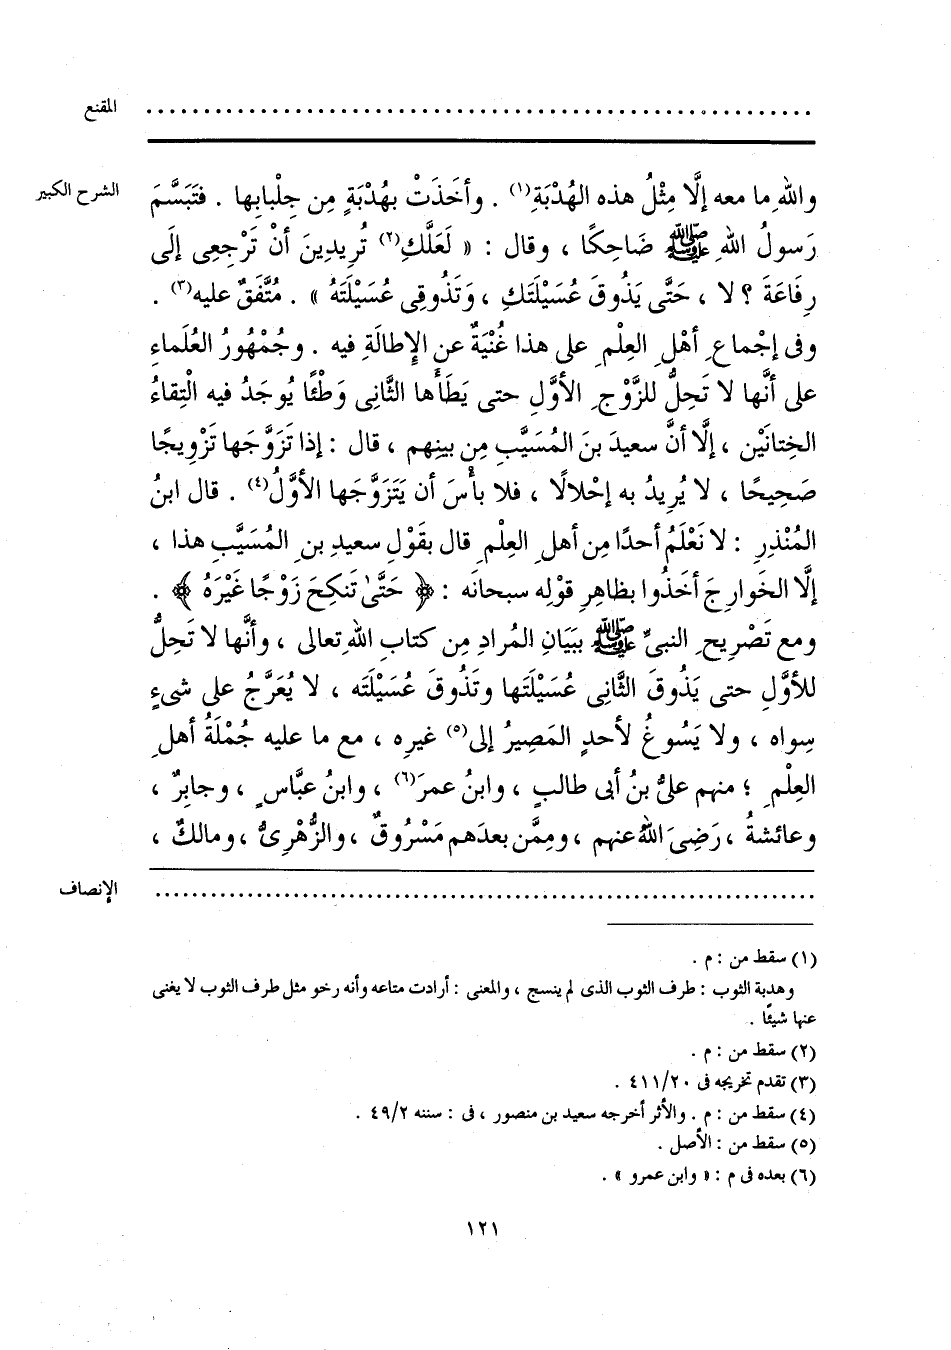 المقنع ............................................................
الشرح الكبير واللهِ ما معه إلَّا مِثْلُ هذه الهُدْبَةِ(١) . وأخَذَتْ بهُدْبَةٍ مِن جِلْبابِها . فتَبَسَّمَ
رَسولُ اللهِ ﷺ ضَاحِكًا ، وقال : « لَعَلَّكِ(٢) تُرِيدِينَ أنْ تَرْجِعِى إلَى
رِفَاعَةَ ؟ لا ، حَتَّى يَذُوقَ عُسَيْلَتَكِ ، وَتَذُوقِى عُسَيْلَتَهُ » . مُتَّفَقٌ عليه(٣) .
وفى إجْماعِ أهْلِ العِلْمِ على هذا غُنْيَةٌ عن الإِطالَةِ فيه . وجُمْهُورُ العُلَماءِ
على أنَّها لا تَحِلُّ للزَّوْجِ الأوَّلِ حتى يَطَأَها الثَّانِى وَطْئًا يُوجَدُ فيه الْتِقاءُ
الخِتانَيْن ، إلَّا أنَّ سعيدَ بنَ المُسَيَّبِ مِن بينِهم ، قال : إذا تَزَوَّجَها تَزْوِيجًا
صَحِيحًا ، لا يُرِيدُ به إحْلالًا ، فلا بأْسَ أن يَتَزَوَّجَها الأوَّلُ(٤) . قال ابنُ
المُنْذِرِ : لا نَعْلَمُ أحدًا مِن أهلِ العِلْمِ قال بقَوْلِ سعيدِ بنِ المُسَيَّبِ هذا ،
إلَّا الخَوارِجَ أخَذُوا بظاهِرِ قوْلِه سبحانَه : ﴿ حَتَّىٰ تَنكِحَ زَوْجًا غَيْرَهُ ﴾ .
ومع تَصْرِيحِ النبىِّ ﷺ ببَيَانِ المُرادِ مِن كتابِ اللهِ تعالى ، وأنَّها لا تَحِلُّ
للأوَّلِ حتى يَذُوقَ الثَّانِى عُسَيْلَتَها وتَذُوقَ عُسَيْلَتَه ، لا يُعَرَّجُ على شىءٍ
سِواه ، ولا يَسُوغُ لأحدٍ المَصِيرُ إلى(٥) غيرِه ، مع ما عليه جُمْلَةُ أهلِ
العِلْمِ ؛ منهم علىُّ بنُ أبى طالبٍ ، وابنُ عمرَ(٦) ، وابنُ عبَّاسٍ ، وجابِرٌ ،
وعائشةُ ، رَضِىَ اللهُ عنهم ، ومِمَّن بعدَهم مَسْرُوقٌ ، والزُّهْرِىُّ ، ومالكٌ ،
الإنصاف ............................................................
(١) سقط من : م .
وهدبة الثوب : طرف الثوب الذى لم ينسج ، والمعنى : أرادت متاعه وأنه رخو مثل طرف الثوب لا يغنى
عنها شيئًا .
(٢) سقط من : م .
(٣) تقدم تخريجه فى ٤١١/٢٠ .
(٤) سقط من : م . والأثر أخرجه سعيد بن منصور ، فى : سننه ٤٩/٢ .
(٥) سقط من : الأصل .
(٦) بعده فى م : « وابن عمرو » .
١٢١